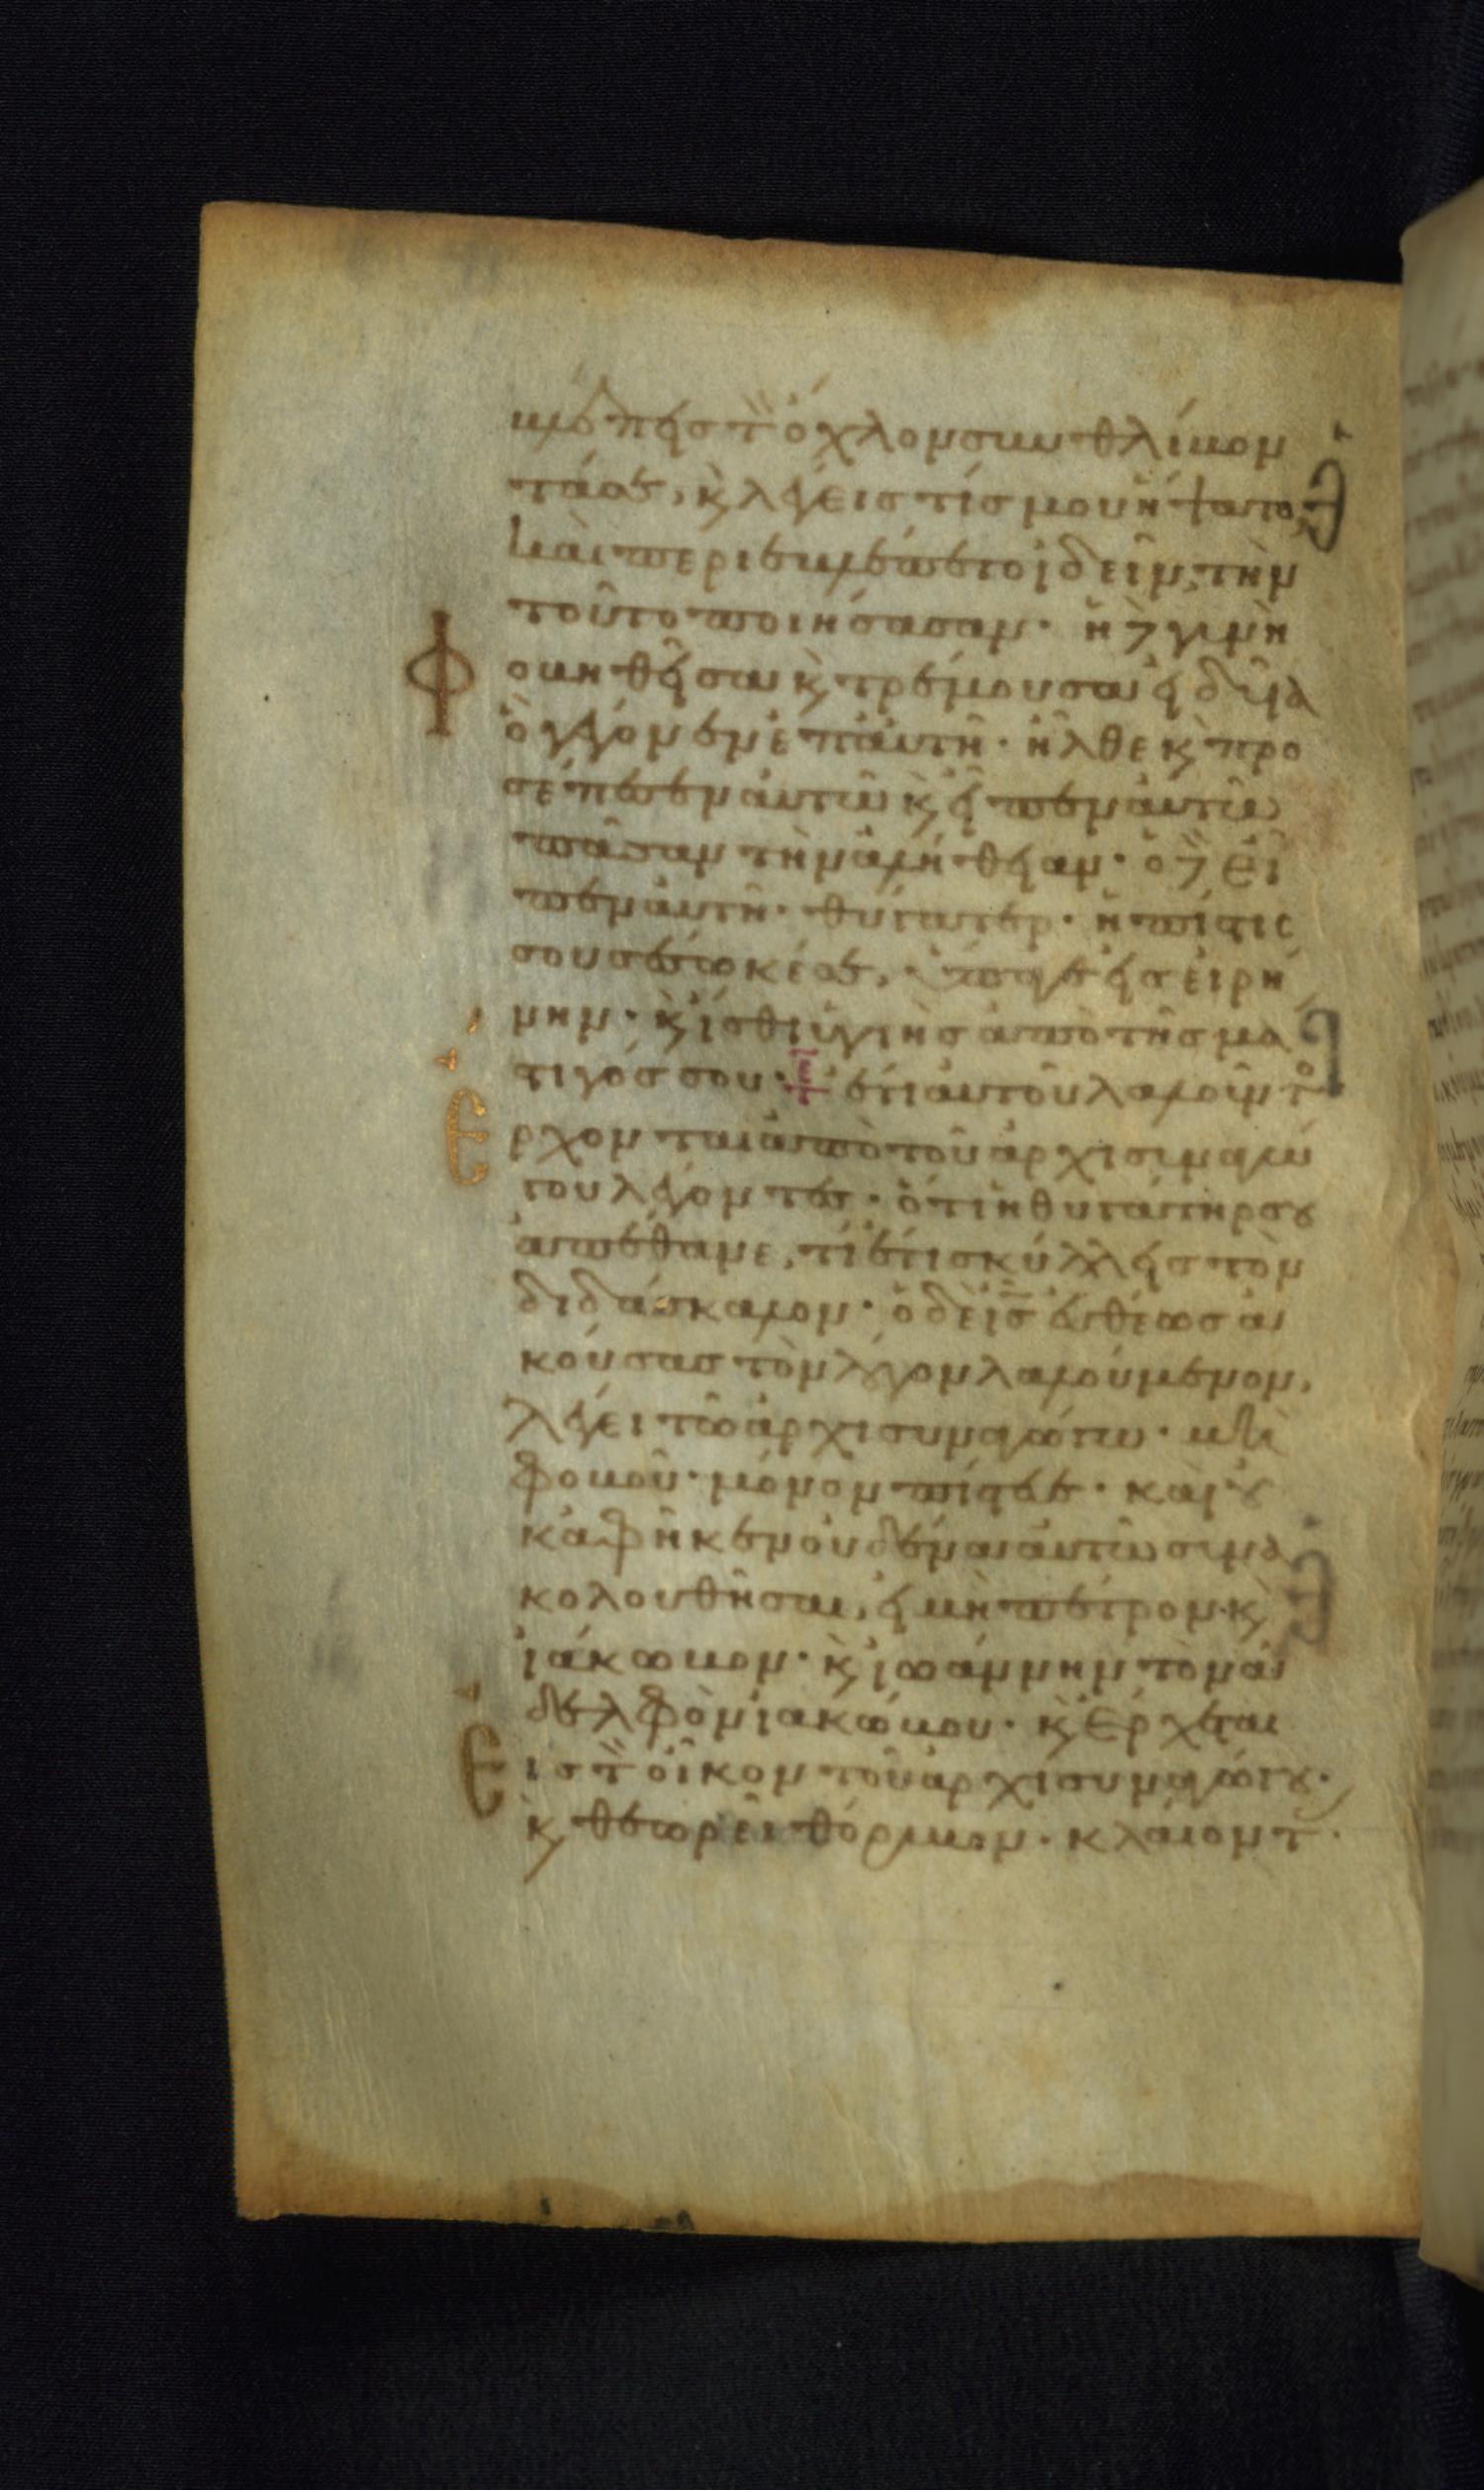 βλέπεις τ̀ ὄχλον συνθλίβον
τά σε, κ̀ λέγεις τίς μου ἥψατο,
καὶ περιεβλέπετο ἰδεῖν τὴν
τοῦτο ποιήσασαν· ἡ δ̀γυνὴ
φοβηθεῖσα κ̀ τρέμουσα εἰδυῖα
ὃ γέγονεν ἐπ αὐτῆ· ἦλθε κ̀ προ
σέπεσεν αὐτῶ κ̀ εἶπεν αὐτῶ
πᾶσαν τὴν ἀλήθειαν· ὁ δ̀ εἶ
πεν αὐτῆ· θύγατερ· ἡ πίστις
σου σέσωκέ σε, ὕπαγε εἰς εἰρή
νην· κ̀ ἴσθι ὑγιὴς ἀπὸ τῆς μά
στιγός σου· ἔτι αὐτοῦ λαλοῦντο
ἔρχονται ἀπὸ τοῦ ἀρχισυναγώ
γου λέγοντες· ὅτι ἡ θυγάτηρ σου
ἀπέθανε, τί ἔτι σκύλλεις τὸν
διδάσκαλον· ὁ δὲ ἰς̅ εὐθέως ἀ
κούσας τὸν λόγον λαλούμενον,
λέγει τῶ ἀρχισυναγώγω· μὴ
φοβοῦ· μόνον πίστευε· καὶ οὐ
κ ἀφῆκεν οὐδένα αὐτῶ συνα
κολουθῆσαι, εἰ μὴ πέτρον κ̀
ἰάκωβον· κ̀ ἰωάννην τὸν ἀ
δελφὸν ἰακώβου· κ̀ ἔρχεται
εἰς τ̀ οἶκον τοῦ ἀρχισυναγώγου·
κ̀ θεωρεῖ θόρυβον· κλαίοντ